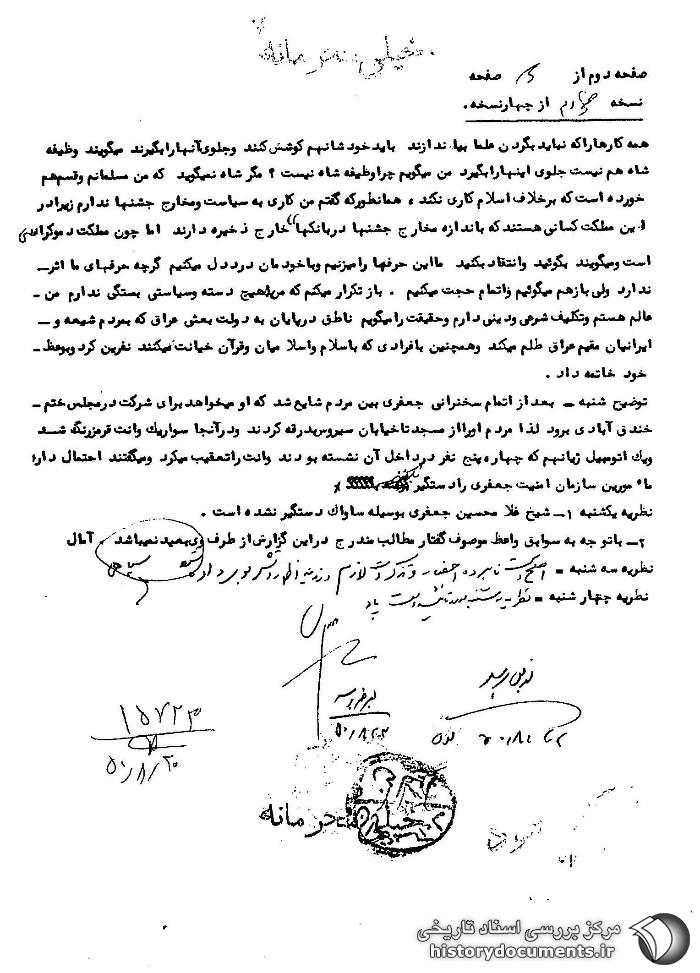 خیلی محرمانه
صفحه دوم از صفحه
نسخه چهارم از چهار نسخه .
همه کارها را که نباید بگردن علما بیاندازند باید خودشانهم کوشش کنند وجلوی آنها را بگیرند میگویند وظیفه
شاه هم نیست جلوی اینها را بگیرد من میگویم چرا وظیفه شاه نیست ؟ مگر شاه نمیگوید که من مسلمانم وقسم هم
خورده است که برخلاف اسلام کاری نکند ، همانطورکه گفتم من کاری به سیاست ومخارج جشنها ندارم زیرا در
این مملکت کسانی هستند که باندازه مخارج جشنها در بانکهای خارج ذخیره دارند اما چون مملکت دموکراسی
است ومیگویند بگوئید وانتقاد بکنید ما این حرفها را میزنیم وبا خودمان درددل میکنیم گرچه حرفهای ما اثر ــ
ندارد ولی باز هم میگوئیم واتمام حجت میکنیم . باز تکرار میکنم که من بهیچ دسته وسیاستی بستگی ندارم من ــ
عالم هستم وتکلیف شرعی ودینی دارم وحقیقت را میگویم ناطق درپایان به دولت بعثی عراق که بمردم شیعه و ــ
ایرانیان مقیم عراق ظلم میکند وهمچنین بافرادی که باسلام واسلامیان وقرآن خیانت میکنند نفرین کرد وبوعظ ــ
خود خاتمه داد .
توضیح شنبه ــ بعد از اتمام سخنرانی جعفری بین مردم شایع شد که او میخواهد برای شرکت در مجلس ختم ــ
خندق آبادی برود لذا مردم او را از مسجد تا خیابان سیروس بدرقه کردند ودرآنجا سوار یک وانت قرمز رنگ شد
ویک اتومبیل ژیان هم که چهار پنج نفر در داخل آن نشسته بودند وانت را تعقیب میکرد ومیگفتند احتمال دارد
مأمورین سازمان امنیت جعفری را دستگیر
نظریه یکشنبه ۱ــ شیخ غلامحسین جعفری بوسیله ساواک دستگیر نشده است .
۲ــ باتوجه به سوابق واعظ موصوف گفتار مطالب مندرج در این گزارش از طرف وی بعید نمیباشد . آمال
نظریه سه شنبه = اصلح است نامبرده احضار و تذکرات لازم در زمینه اظهاراتش بوی داده
نظریه چهارشنبه =
۱۵۷۲۳
۵۰/۸/۲۰
خیلی محرمانه
مرکز بررسی اسناد تاریخی
historydocuments.ir